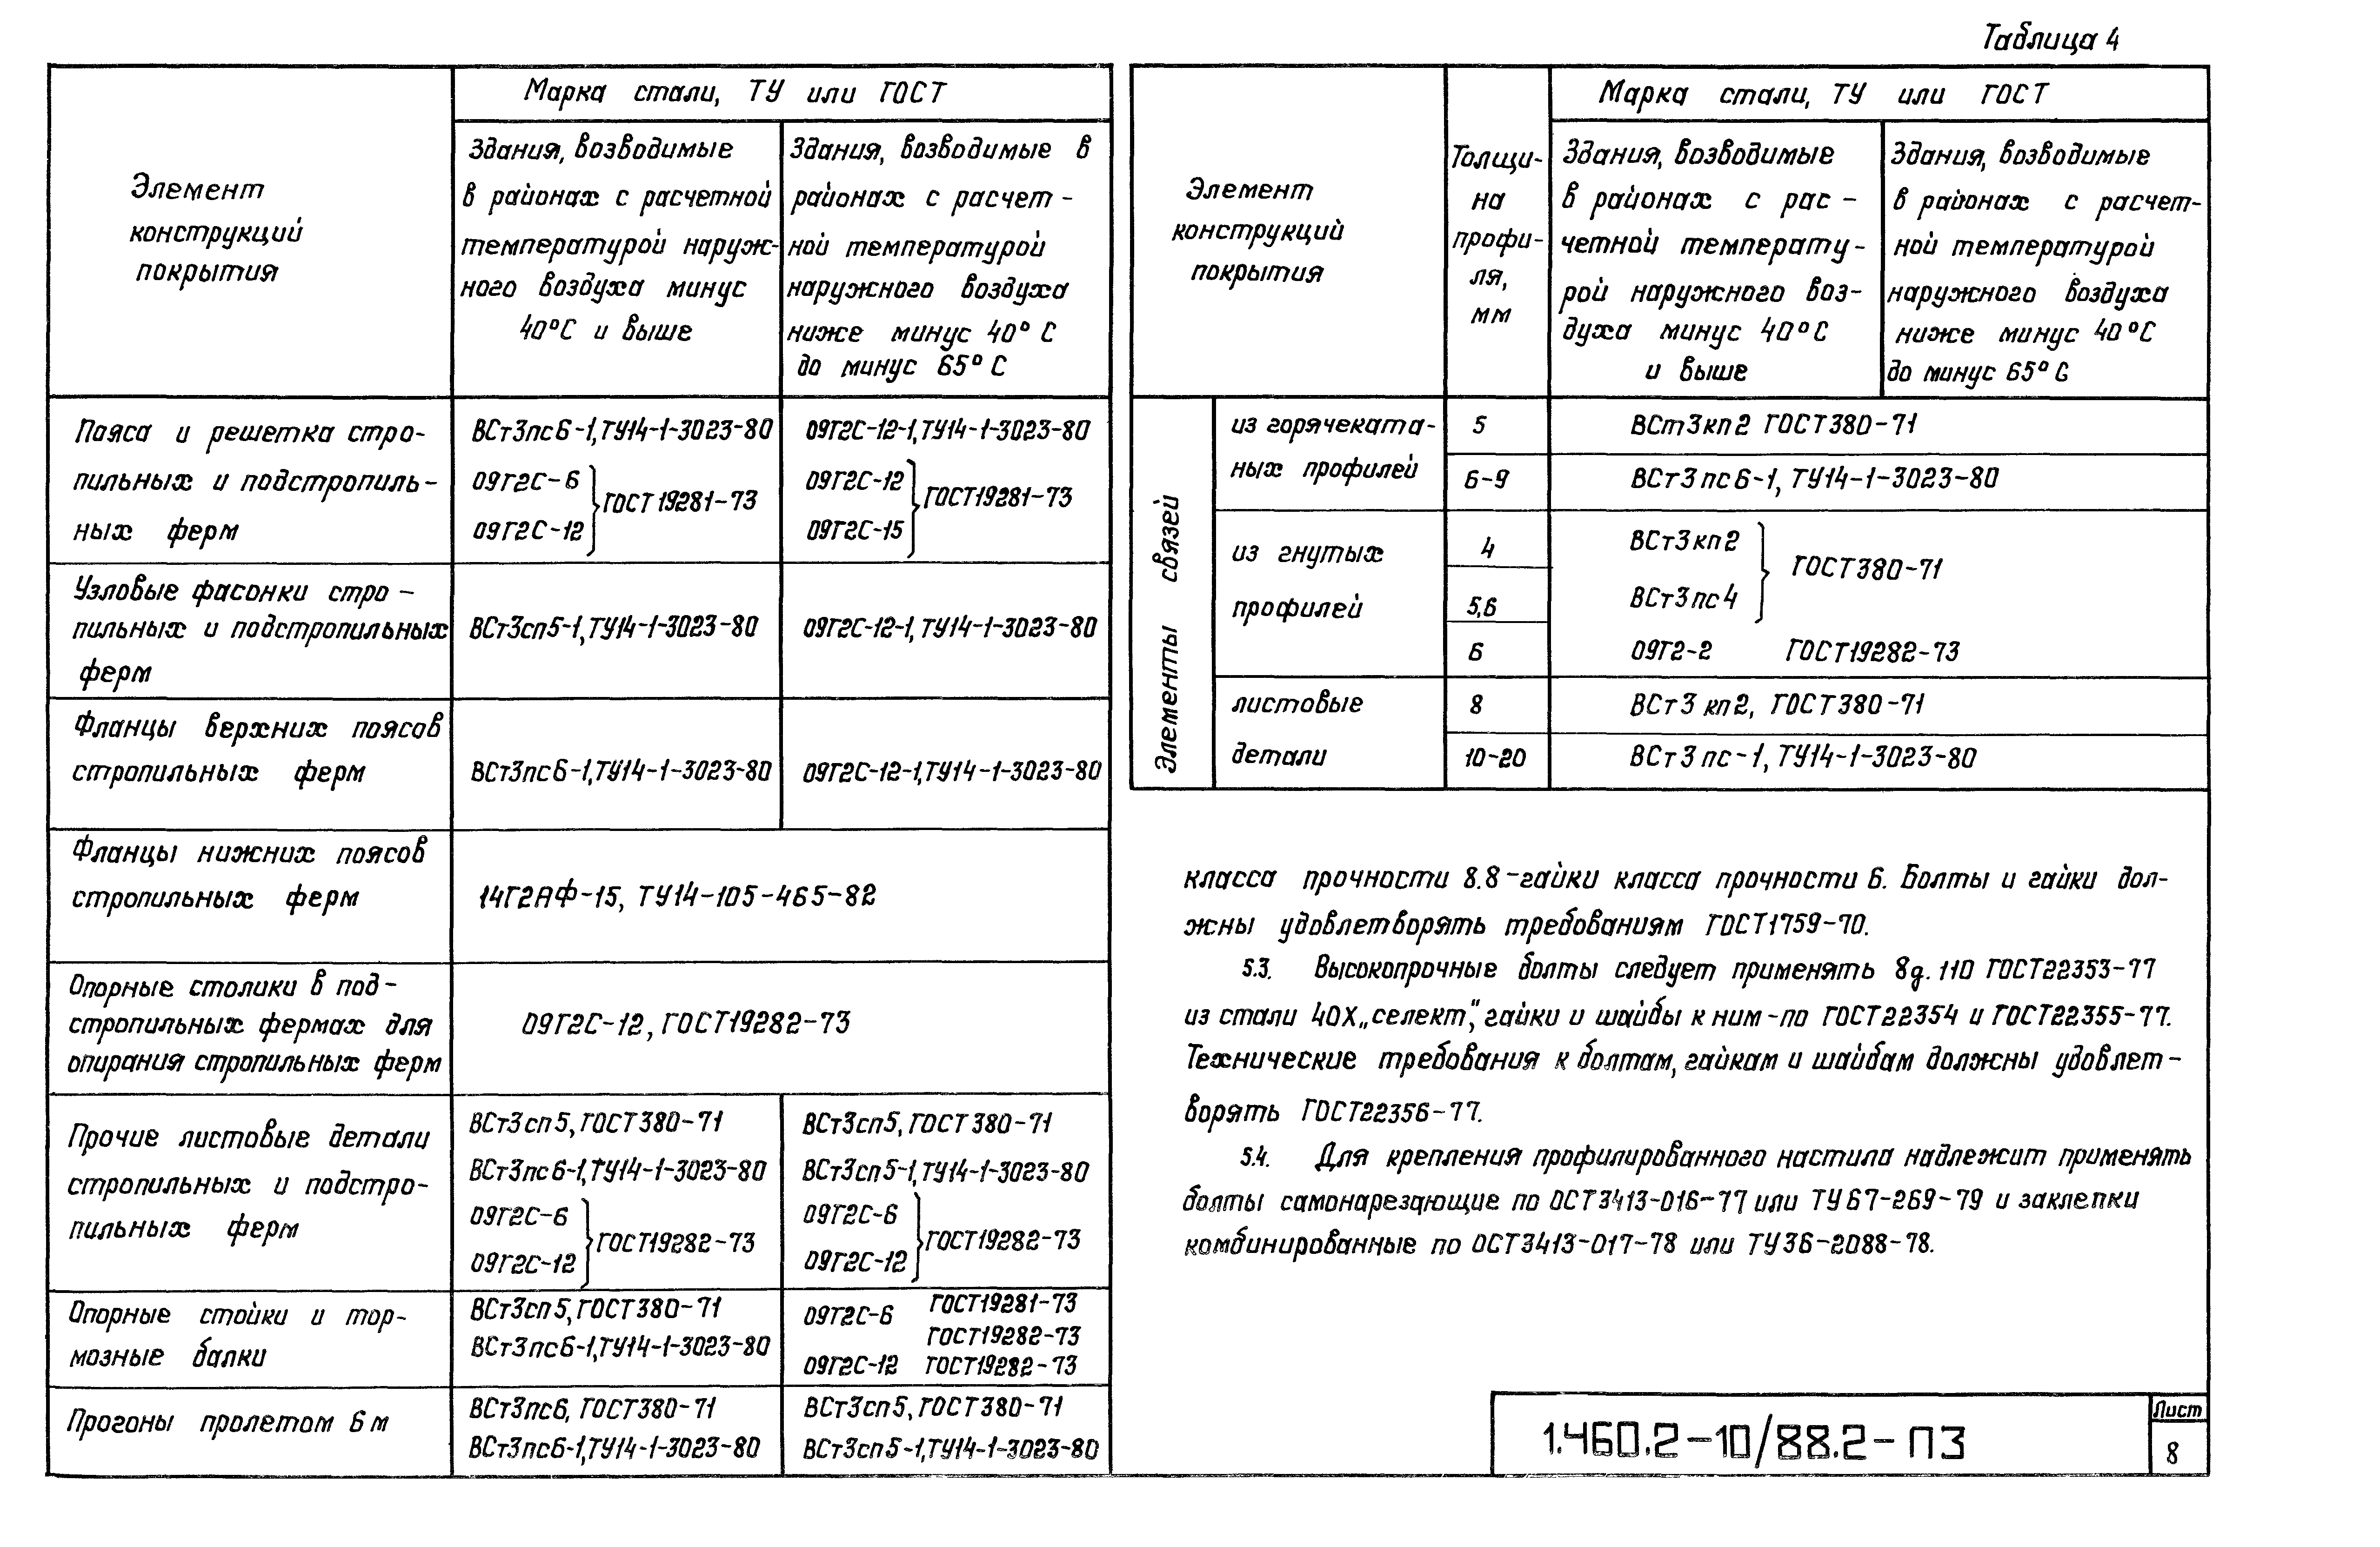 Таблица 4
Элемент
конструкций
покрытия
Марка стали, ТУ или ГОСТ
Здания, возводимые
в районах с расчетной
температурой наруж-
ного воздуха минус
40°С и выше
Здания, возводимые в
районах с расчет-
ной температурой
наружного воздуха
ниже минус 40°С
до минус 65°С
Пояса и решетка стро-
пильных и подстропиль-
ных ферм
ВСт3пс6-1,ТУ14-1-3023-80
09Г2С-6
09Г2С-12
ГОСТ19281-73
09Г2С-12-1,ТУ14-1-3023-80
09Г2С-12
09Г2С-15
ГОСТ19281-73
Узловые фасонки стро-
пильных и подстропильных
ферм
ВСт3сп5-1,ТУ14-1-3023-80
09Г2С-12-1,ТУ14-1-3023-80
Фланцы верхних поясов
стропильных ферм
ВСт3пс6-1,ТУ14-1-3023-80
09Г2С-12-1,ТУ14-1-3023-80
Фланцы нижних поясов
стропильных ферм
14Г2АФ-15, ТУ14-105-465-82
Опорные столики в под-
стропильных фермах для
опирания стропильных ферм
09Г2С-12, ГОСТ19282-73
Прочие листовые детали
стропильных и подстро-
пильных ферм
ВСт3сп5,ГОСТ380-71
ВСт3пс6-1,ТУ14-1-3023-80
09Г2С-6
09Г2С-12
ГОСТ19282-73
ВСт3сп5,ГОСТ380-71
ВСт3сп5-1,ТУ14-1-3023-80
09Г2С-6
09Г2С-12
ГОСТ19282-73
Опорные стойки и тор-
мозные балки
ВСт3сп5,ГОСТ380-71
ВСт3пс6-1,ТУ14-1-3023-80
09Г2С-6 ГОСТ19281-73
ГОСТ19282-73
09Г2С-12 ГОСТ19282-73
Прогоны пролетом 6м
ВСт3пс6, ГОСТ380-71
ВСт3пс6-1,ТУ14-1-3023-80
ВСт3сп5,ГОСТ380-71
ВСт3сп5-1,ТУ14-1-3023-80
Элемент
конструкций
покрытия
Толщи-
на
профи-
ля,
мм
Марка стали, ТУ или ГОСТ
Здания, возводимые
в районах с рас-
четной температу-
рой наружного воз-
духа минус 40°С
и выше
Здания, возводимые
в районах с расчет-
ной температурой
наружного воздуха
ниже минус 40°С
до минус 65°С
Элементы связей
из горячеката-
ных профилей
5
ВСт3кп2 ГОСТ380-71
6-9
ВСт3пс6-1, ТУ14-1-3023-80
из гнутых
профилей
4
ВСт3кп2
5,6
ВСт3пс4
ГОСТ380-71
6
09Г2-2 ГОСТ19282-73
листовые
детали
8
ВСт3кп2, ГОСТ380-71
10-20
ВСт3пс-1, ТУ14-1-3023-80
класса прочности 8.8-гайки класса прочности 6. Болты и гайки дол-
жны удовлетворять требованиям ГОСТ1759-70.
5.3. Высокопрочные болты следует применять 8g.110 ГОСТ22353-77
из стали 40Х„селект”, гайки и шайбы к ним-по ГОСТ22354 и ГОСТ22355-77.
Технические требования к болтам, гайкам и шайбам должны удовлет-
ворять ГОСТ22356-77.
5.4. Для крепления профилированного настила надлежит применять
болты самонарезающие по ОСТ3413-016-77 или ТУ67-269-79 и заклепки
комбинированные по ОСТ3413-017-78 или ТУ36-2088-78.
1.460.2-10/88.2-ПЗ
Лист
8